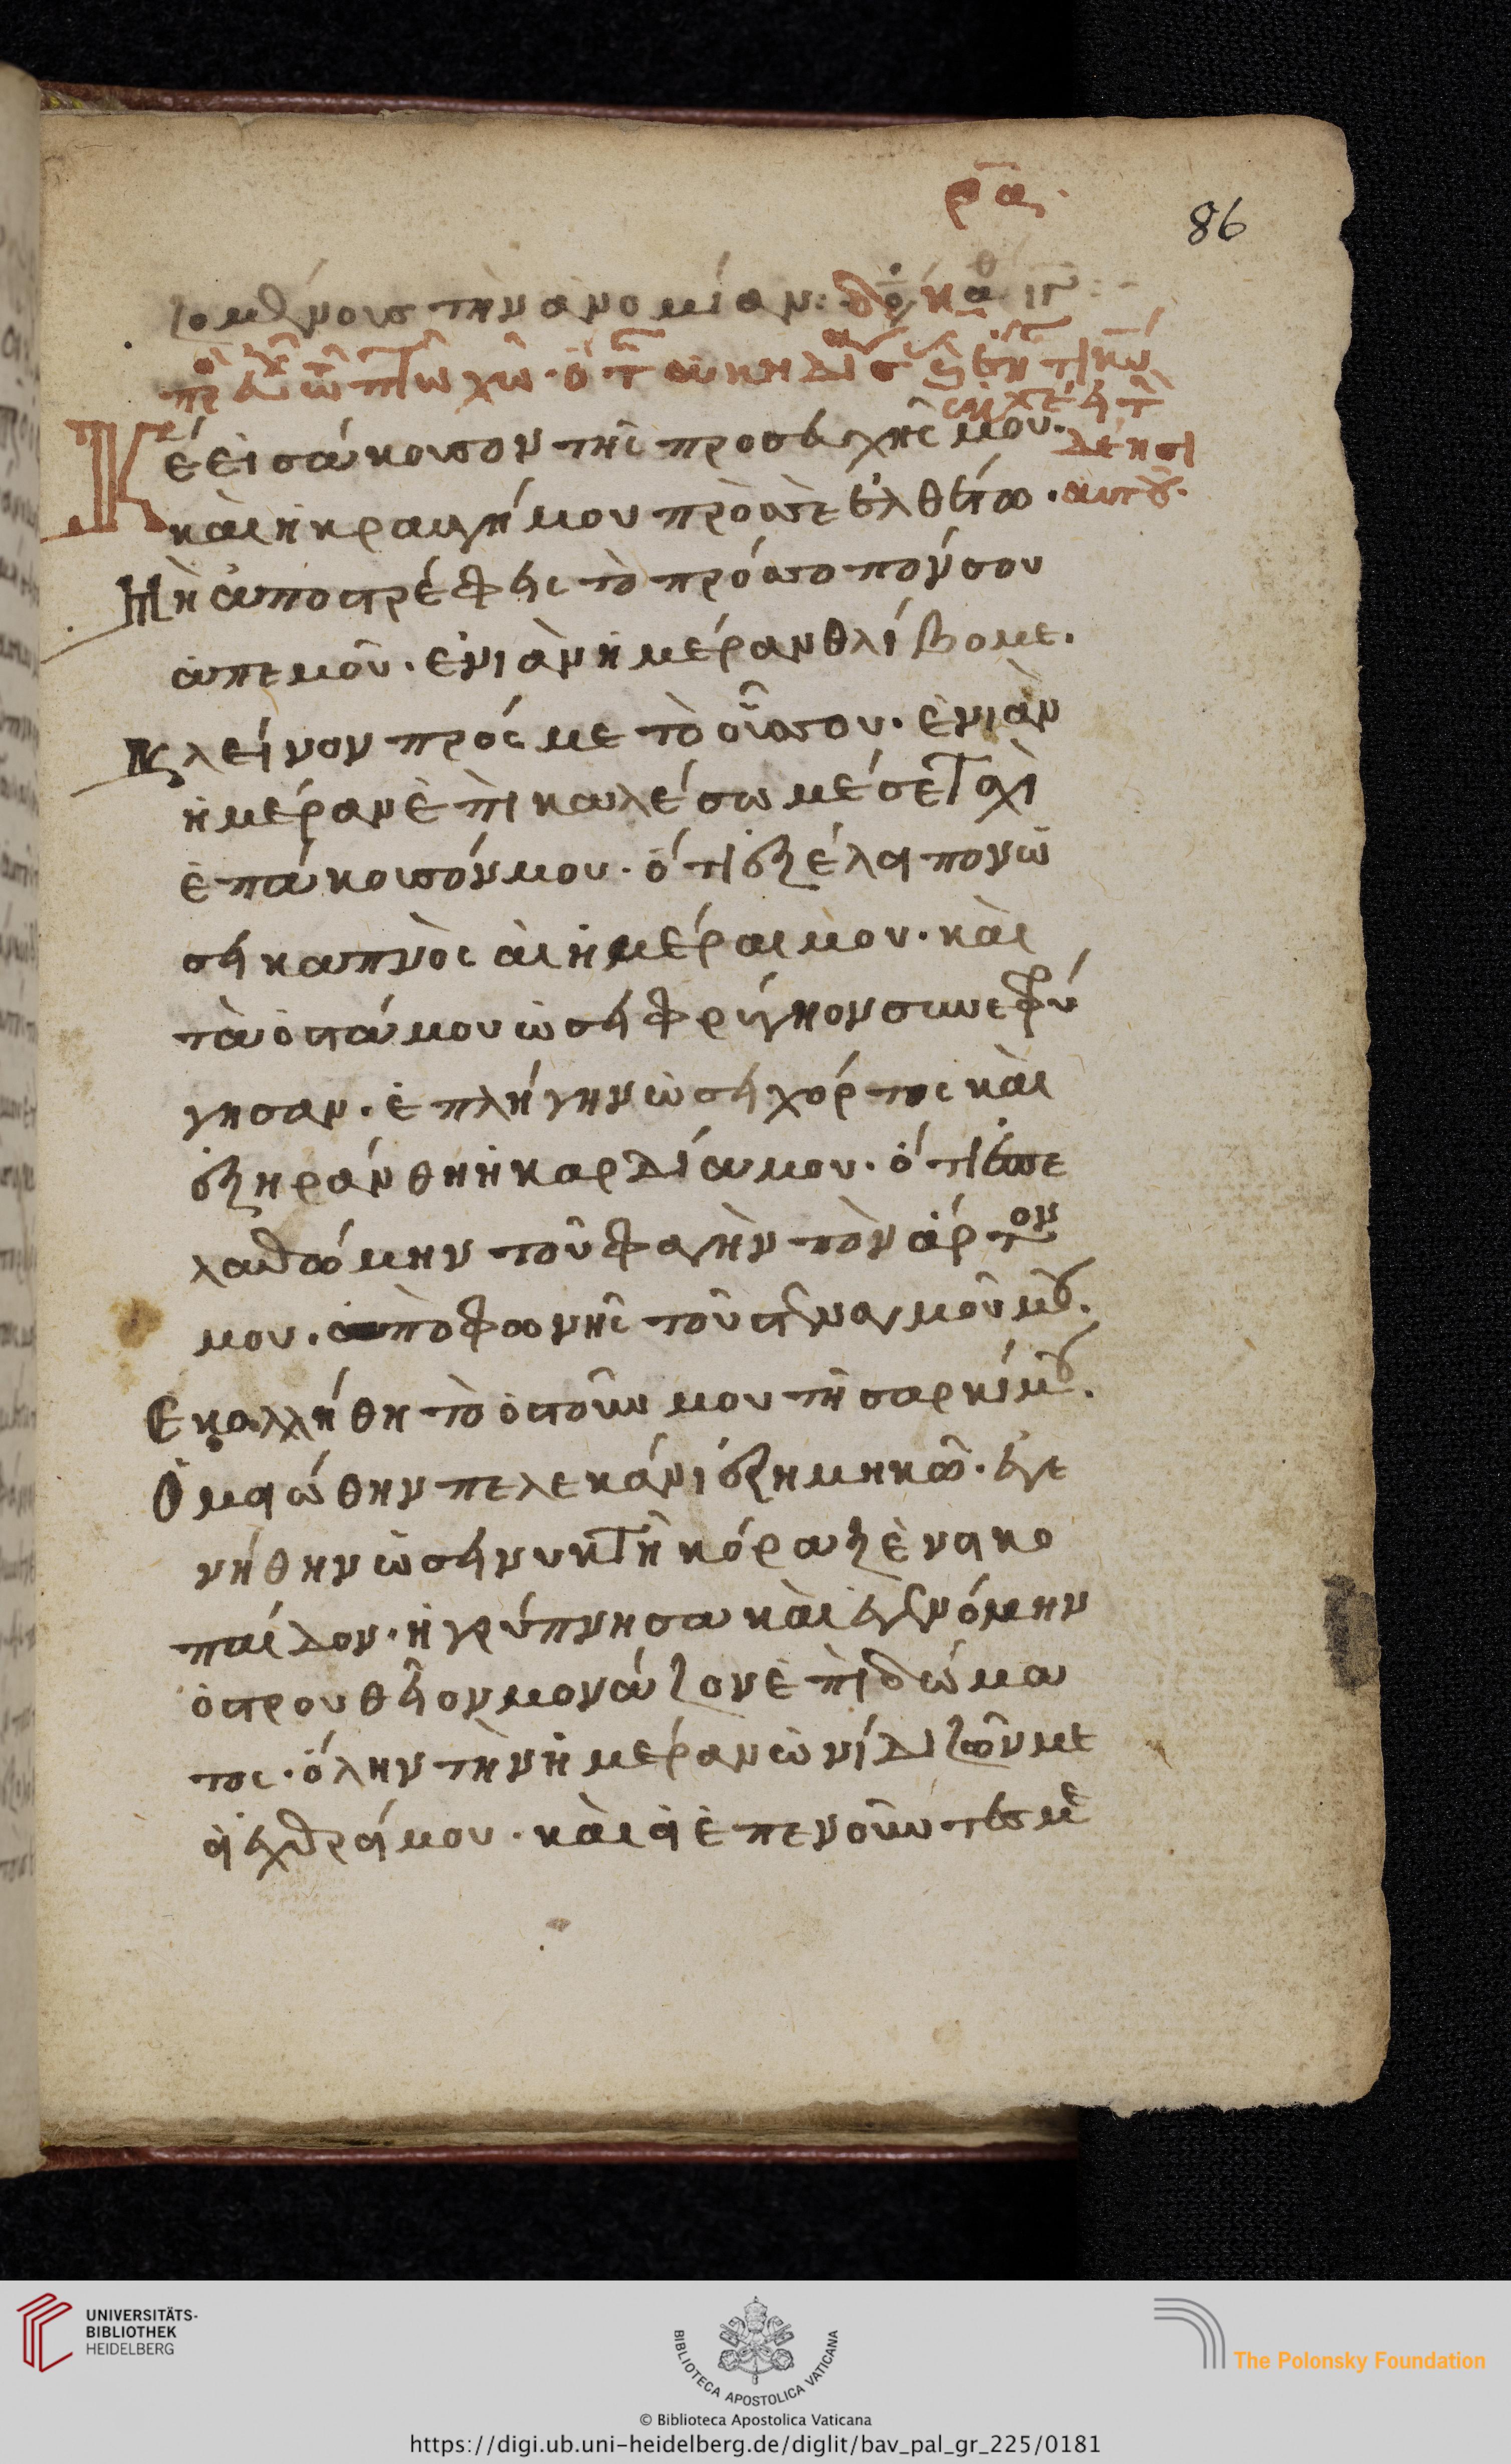 ρα
86
ζομένους τὴν ἀνομίαν:
Κε εἰσάκουσον τῆς προσευχῆς μου.
δεήσι
καὶ ἡ κραυγή μου πρὸς σὲ ἐλθέτω. αὐτοῦ.
Μὴ ἀποστρέψης τὸ πρόσωπόν σου
ἀπεμοῦ. ἐνιὰν ἡμέραν θλίβομε.
Κλεῖνον πρός με τὸ οὖς σου. ἐνιὰν
ἡμέραν ἐπικαλέσωμέ σε ταχὺ
ἐπάκουσόν μου. ὅτι ἐξέλοιπον ὡ
σεὶ καπνὸς αἱ ἡμέραι μου. καὶ
τὰ ὀστά μου ὡσεὶ φρύγηον συνεφρύ
γησαν. ἐπλήγην ὡσεὶ χόρτος καὶ
ἐξηράνθη ἡ καρδία μου. ὅτι ἐπε
λαθώμην τοῦ φαγὴν τὸν άρτον
μου. ἀπὸ φωνῆς τοῦ στεναγμοῦ μου.
Εκολλήθη τὸ ὀστοῦν μου τῆ σαρκί μου.
Ὁμοιώθην πελεκάνι ἐξημηκῶ. ἐγε
νήθην ὡσεὶ νυκτὴκόραξ ἐν οικο
παίδον. ἠγρύπνησα καὶ ἐγενόμην
ὀστρουθεῖον μονάζον ἐπὶ δώμα
τος. ὅλην τὴν ἡμέραν ὠνίδιζῶν με
οἱ ἐχθροί μου. καὶ οἱ ἐπενοῦντές με
UNIVERSITÄTS-
BIBLIOTHEK
HEIDELBERG
BIBLIOTECA APOSTOLICA VATICANA
The Polonsky Foundation
© Biblioteca Apostolica Vaticana
https://digi.ub.uni-heidelberg.de/diglit/bav_pal_gr_225/0181